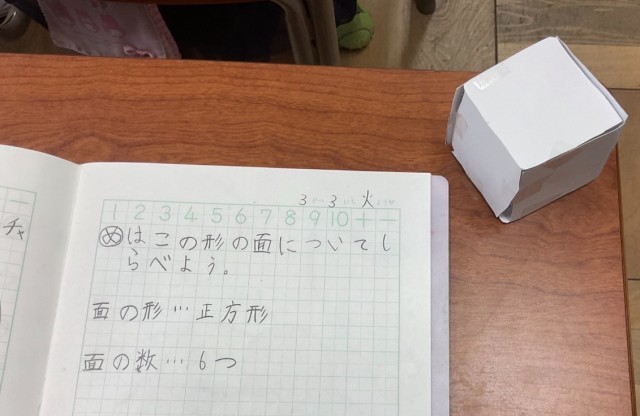 3 3 火
1 2 3 4 5 6 7 8 9 10 + −
めはこの形の面についてし
らべよう。
面の形…正方形
面の数…6つ
チャ